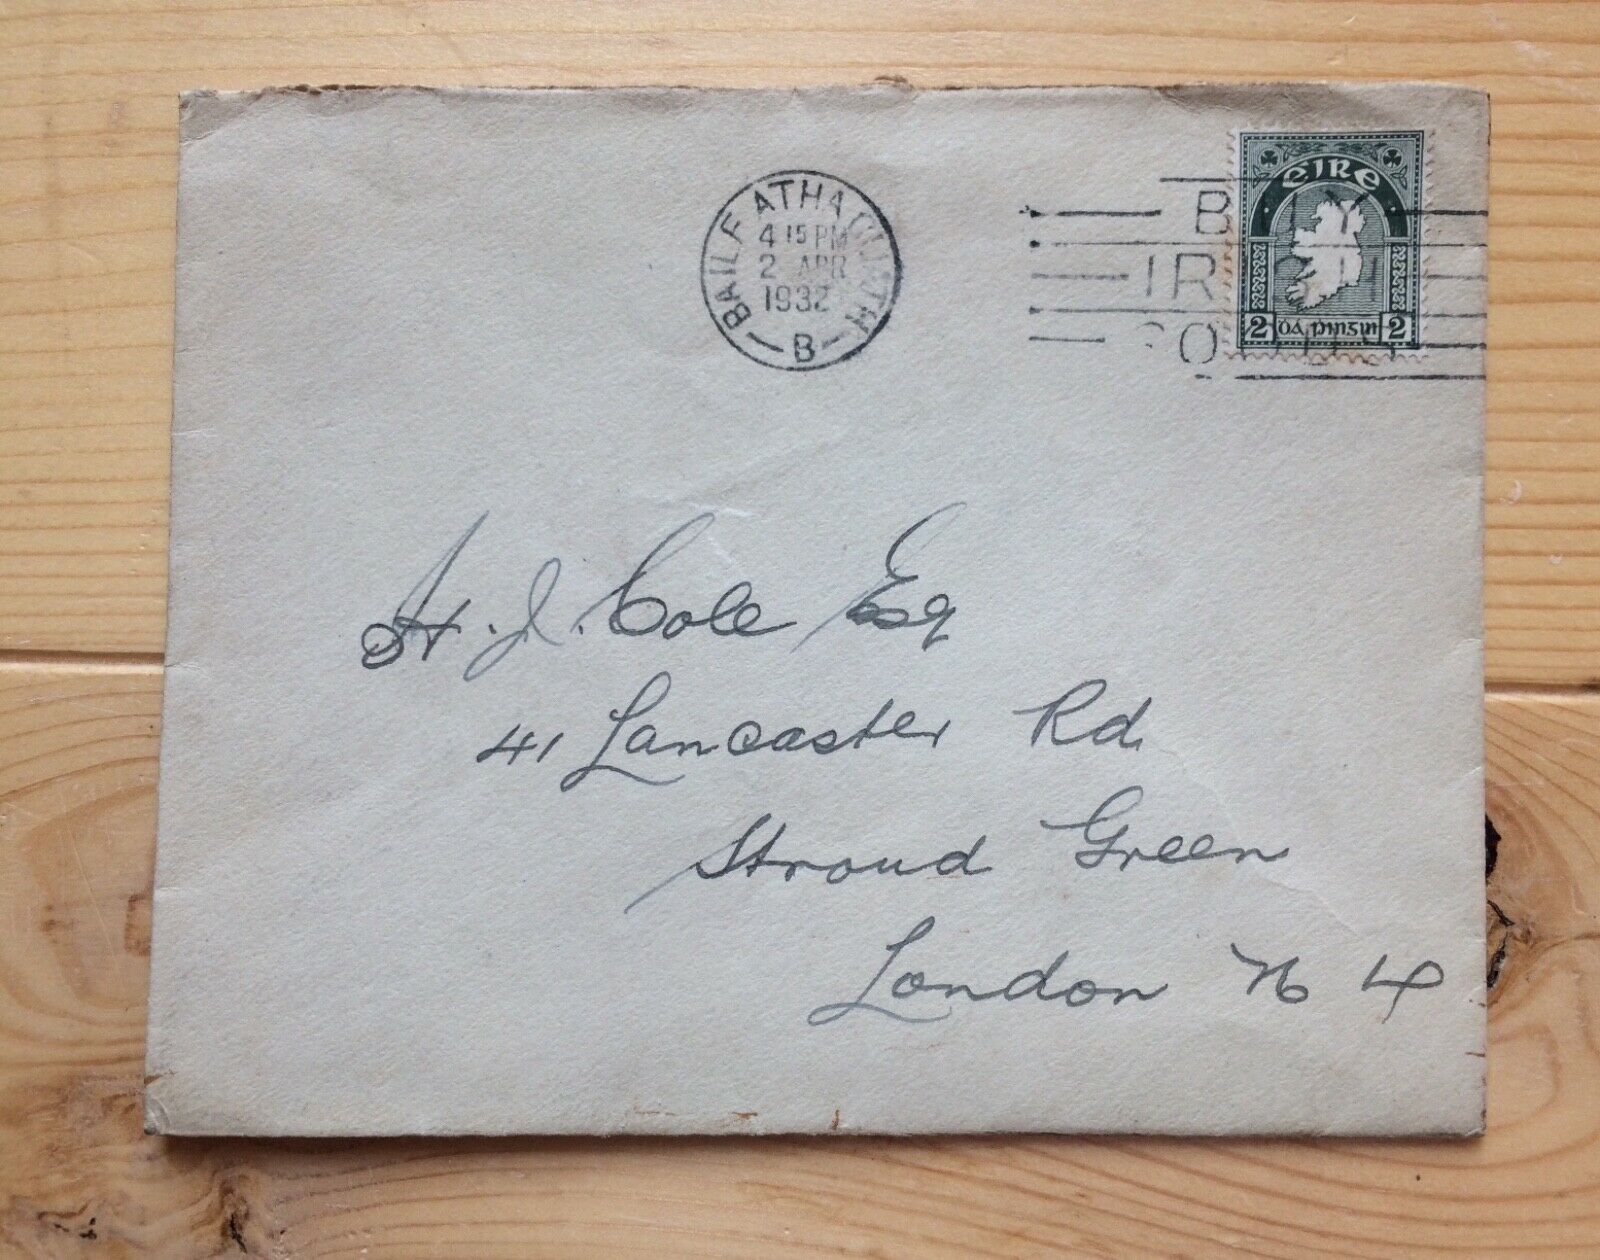 BAILE ATHA CLIATH
4 15 PM
2 APR
1932
B
BUY
IRISH
GOODS
éIRe
2 Dá pinginn 2
H. J. Cole Esq
41 Lancaster Rd.
Stroud Green
London N 4